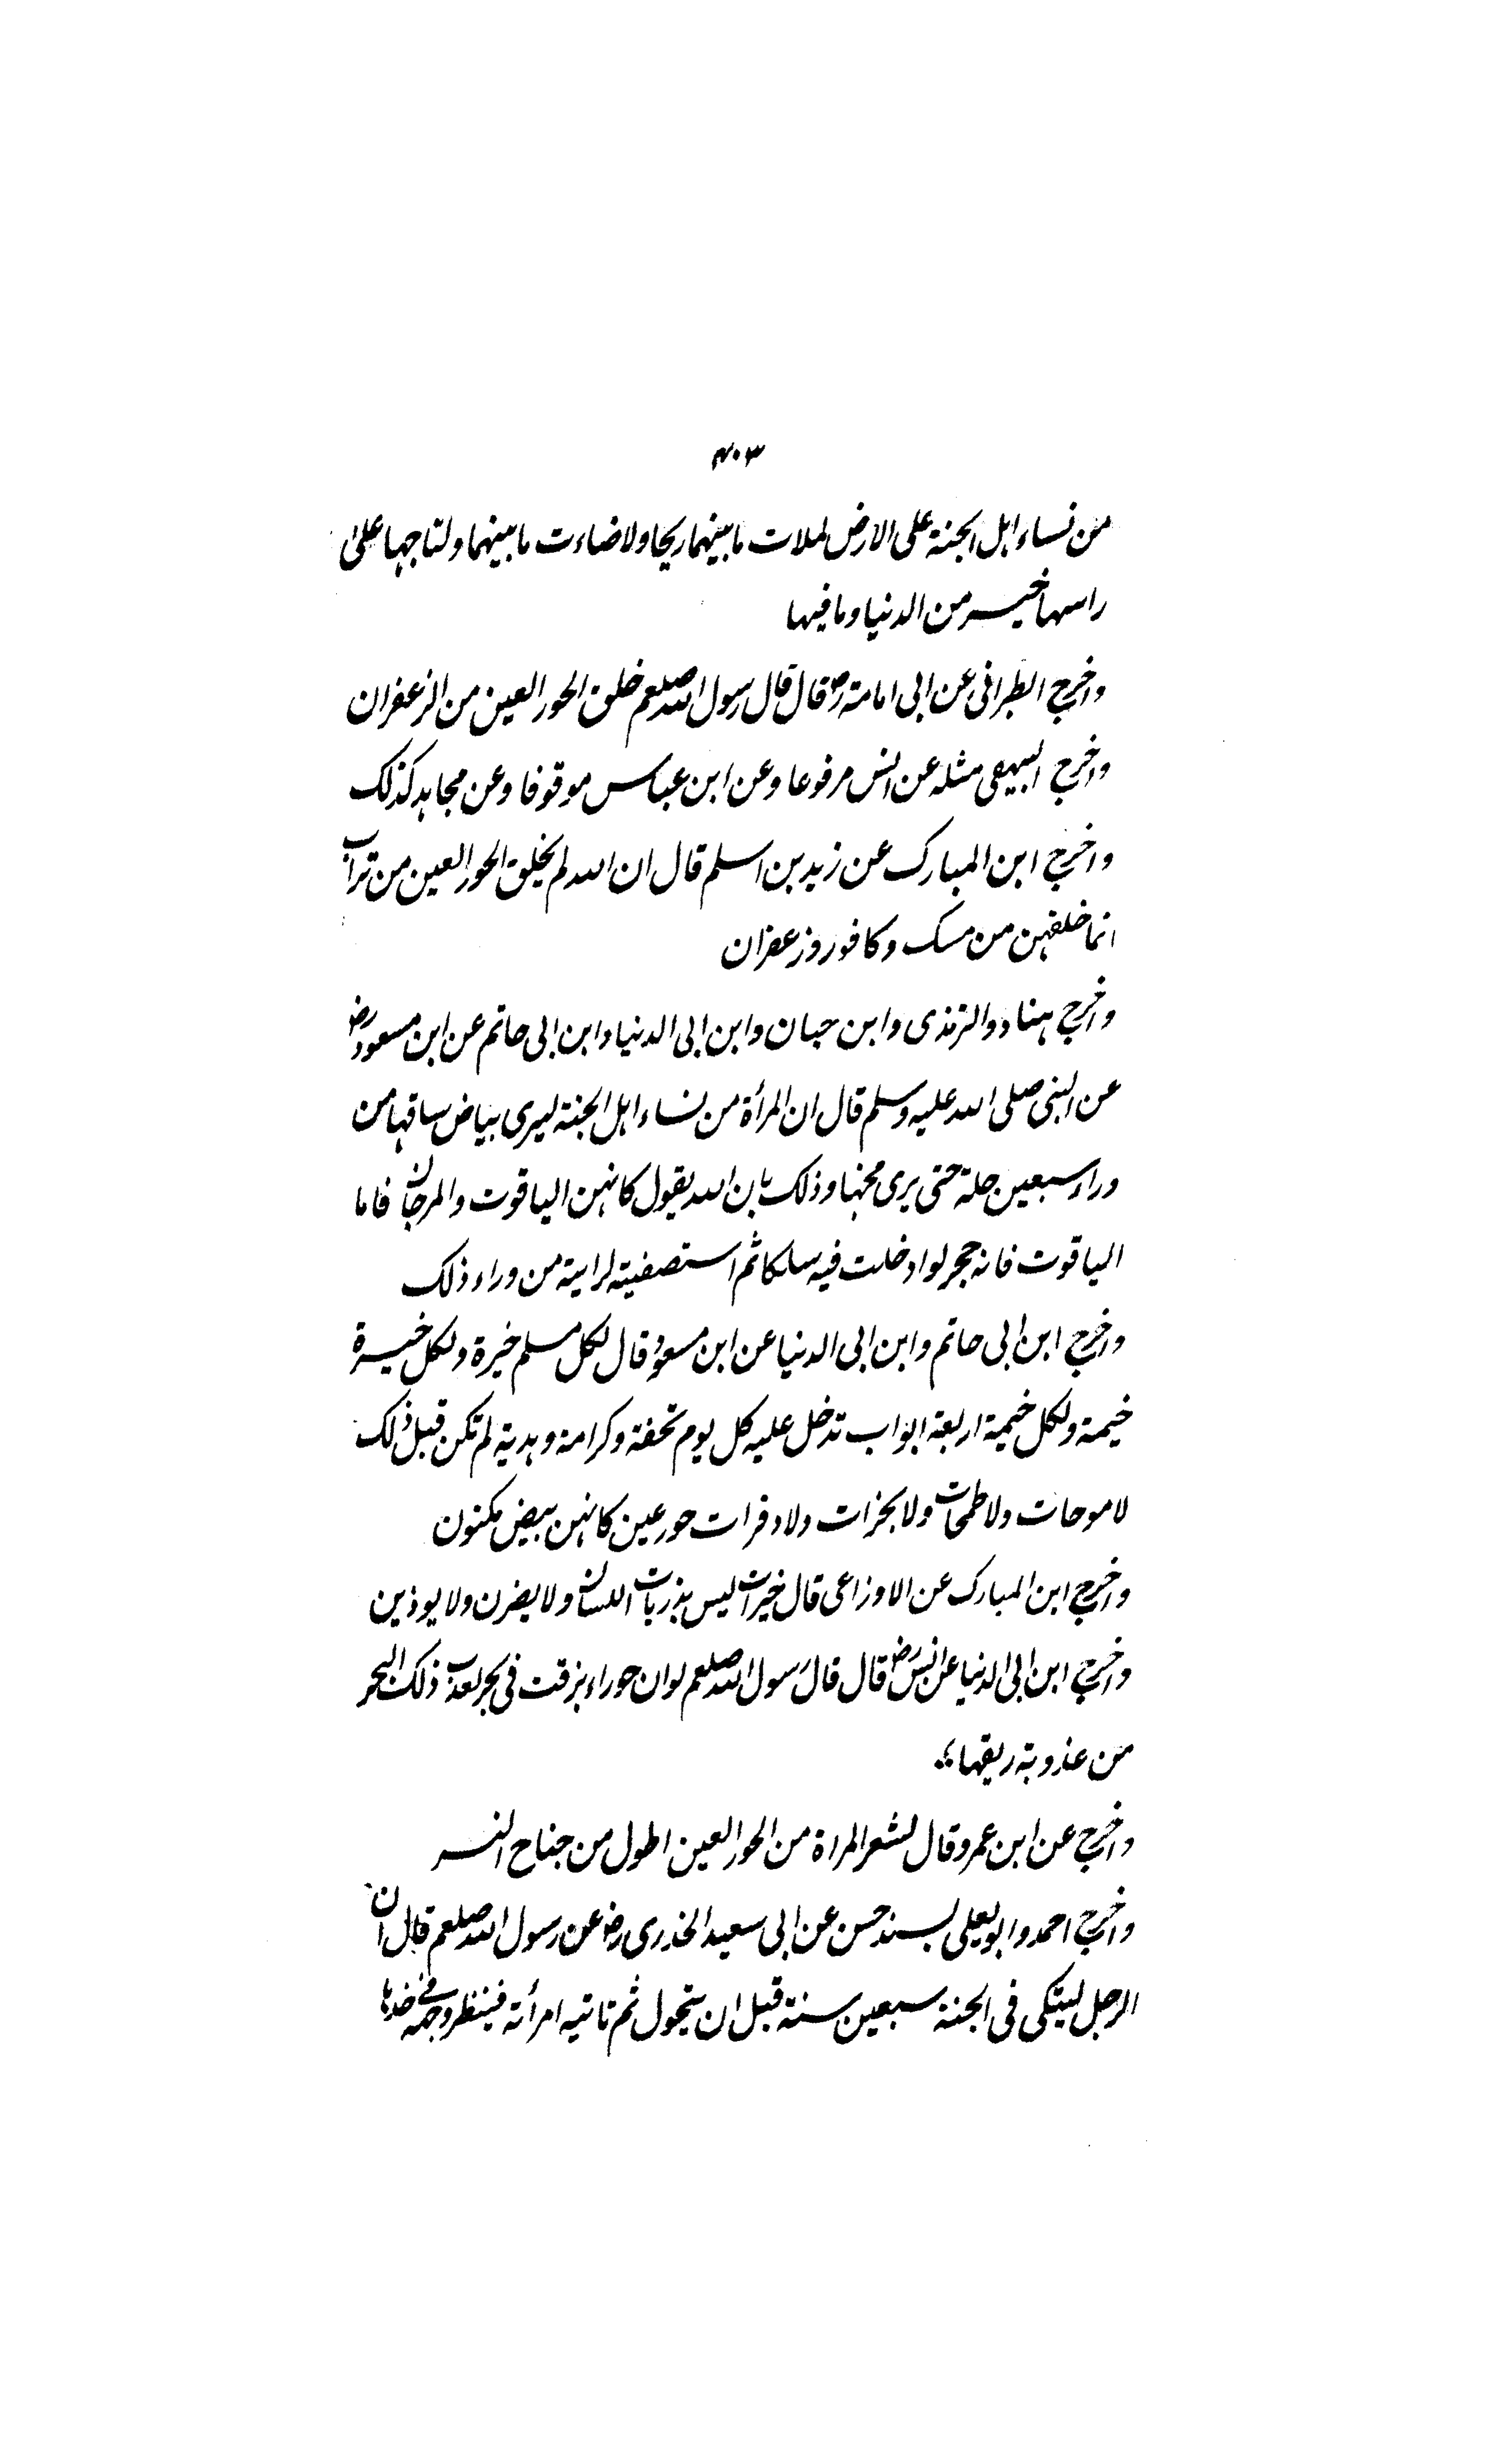 ۴۰۳
من نساء اہل الجنة علی الارض لملات ما بینہما ریحا ولاضاءت ما بینہما ولتاجہا علی
راسہا خیر من الدنیا وما فیہا
واخرج الطبرانی عن ابی امامة رض قال قال رسول اللہ صلعم خلق الحور العین من الزعفران
واخرج البیہقی مثلہ عن انس مرفوعا وعن ابن عباس موقوفا وعن مجاہد کذلک
واخرج ابن المبارک عن زید بن اسلم قال ان اللہ لم یخلق الحور العین من تراب
انما خلقہن من مسک وکافور وزعفران
واخرج ہناد والترمذی وابن حبان وابن ابی الدنیا وابن ابی حاتم عن ابن مسعود رض
عن النبی صلی اللہ علیہ وسلم قال ان المرأة من نساء اہل الجنة لیری بیاض ساقہا من
وراء سبعین حلة حتی یری مخہا وذلک بان اللہ یقول کانہن الیاقوت والمرجان فاما
الیاقوت فانہ حجر لو ادخلت فیہ سلکا ثم استصفیتہ لرایتہ من وراء ذلک
واخرج ابن ابی حاتم وابن ابی الدنیا عن ابن مسعود قال لکل مسلم خیرة ولکل خیرة
خیمة ولکل خیمة اربعة ابواب تدخل علیہ کل یوم تحفة وکرامة وہدیة لم تکن قبل ذلک
لا موحات ولا طمحات ولا بخرات ولا دفرات حور عین کانہن بیض مکنون
واخرج ابن المبارک عن الاوزاعی قال خیرات لیس بذربات اللسان ولا یغرن ولا یوذین
واخرج ابن ابی الدنیا عن انس رض قال قال رسول اللہ صلعم لو ان حوراء بزقت فی بحر لعذب ذلک البحر
من عذوبة ریقہا
واخرج عن ابن عمرو قال لشعر المراة من الحور العین اطول من جناح النسر
واخرج احمد وابو یعلی بسند حسن عن ابی سعید الخدری رض عن رسول اللہ صلعم قال ان
الرجل لیتکی فی الجنة سبعین سنة قبل ان یتحول ثم تاتیہ امرأتہ فینظر وجہہ فی خدہا